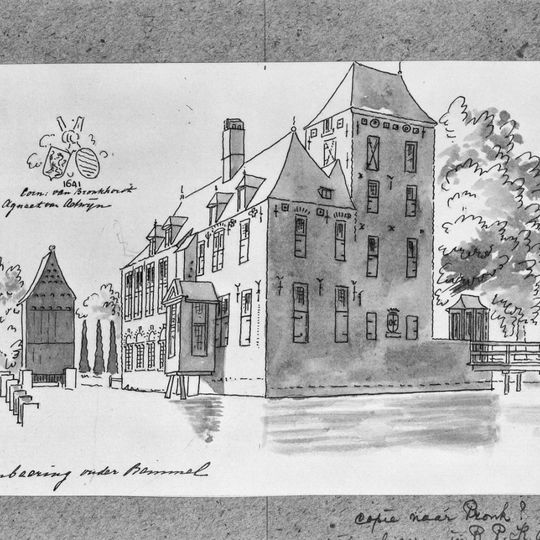 1641
Corn: van Bronkhorst
Agneet van Aswijn
onder Bemmel
copie naar Pronk?